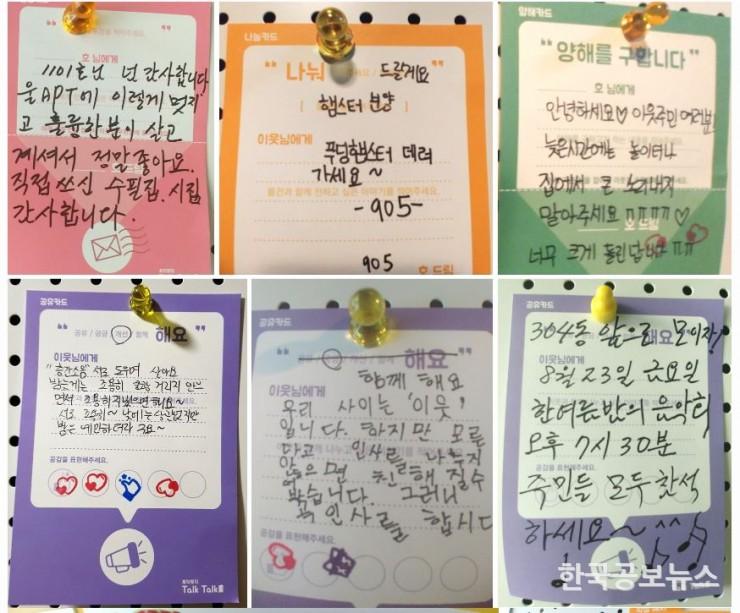 호 님에게
1101호님 넘 감사합니다
울APT에 이렇게 멋지
고 훌륭한분이 살고
계셔서 정말좋아요.
직접쓰신 수필집.시집
감사합니다.
나눔카드
“나눠 드릴게요”
햄스터 분양
이웃님에게
푸딩햄스터 데려
가세요~
물건과 함께 전하고 싶은 이야기를 적어주세요.
-905-
905 호 드림
양해카드
“양해를 구합니다”
호 님에게
안녕하세요♡ 이웃주민 여러분!
늦은시간에는 놀이터나
집에서 큰 소리내지
말아주세요 ㅠㅠㅠㅠ♡
호 드림
너무 크게 울린답니다 ㅠㅠ
공유카드
“공유 / 공감 / 개선 / 함께 해요”
이웃님에게
"층간소음" 서로 도우며 살아요
서로 조심히~
공감을 표현해주세요.
Talk Talk
공유카드
해요
함께 해요
이웃님에게
우리 사이는 '이웃'
입니다. 하지만 모른
다고 인사를 나누지
않으면 친해질수
없습니다. 그러니
꼭 인사를 합시다
공감을 표현해주세요.
공유카드
304동 앞으로 모이자!
해요
이웃님에게
8월 23일 금요일
한여름밤의 음악회
오후 7시 30분
주민들 모두 참석
하세요~ ^^
한국공보뉴스